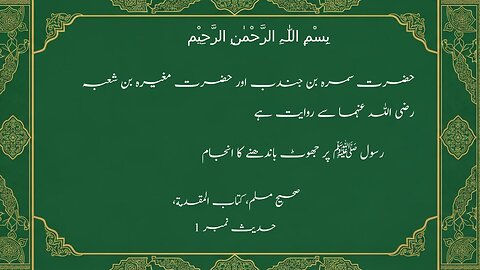 بِسْمِ اللّٰهِ الرَّحْمٰنِ الرَّحِيْمِ
حضرت سمرہ بن جندب اور حضرت مغیرہ بن شعبہ
رضی اللہ عنہما سے روایت ہے
رسول ﷺ پر جھوٹ باندھنے کا انجام
صحیح مسلم، کتاب المقدمۃ،
حدیث نمبر 1